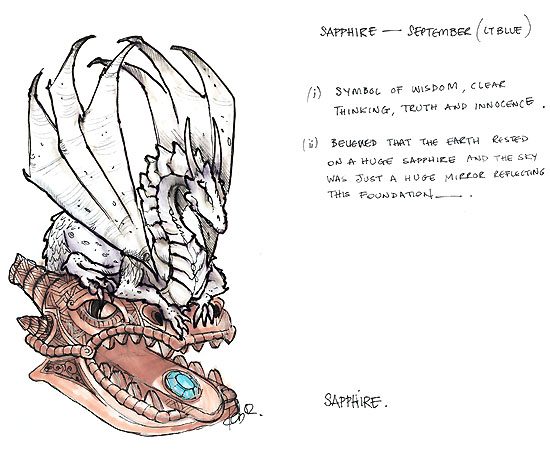 SAPPHIRE — SEPTEMBER (LT BLUE)
(i) SYMBOL OF WISDOM, CLEAR
THINKING, TRUTH AND INNOCENCE.
(ii) BELIEVED THAT THE EARTH RESTED
ON A HUGE SAPPHIRE AND THE SKY
WAS JUST A HUGE MIRROR REFLECTING
THIS FOUNDATION—.
SAPPHIRE.